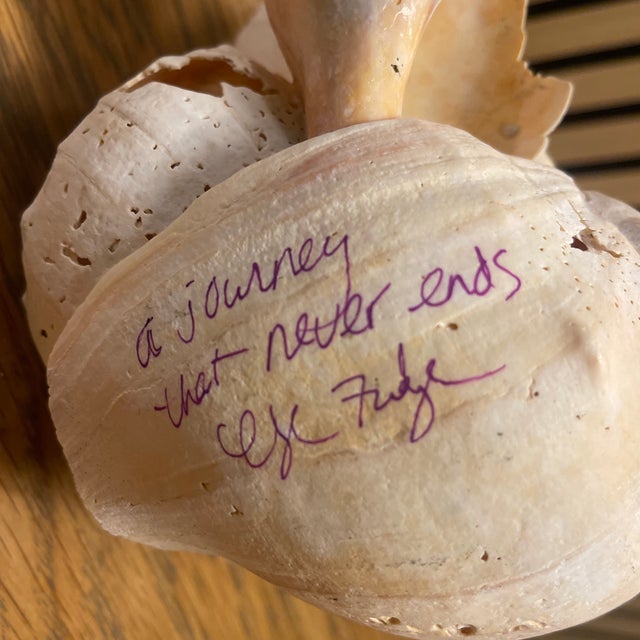 a journey
that never ends
Fudge